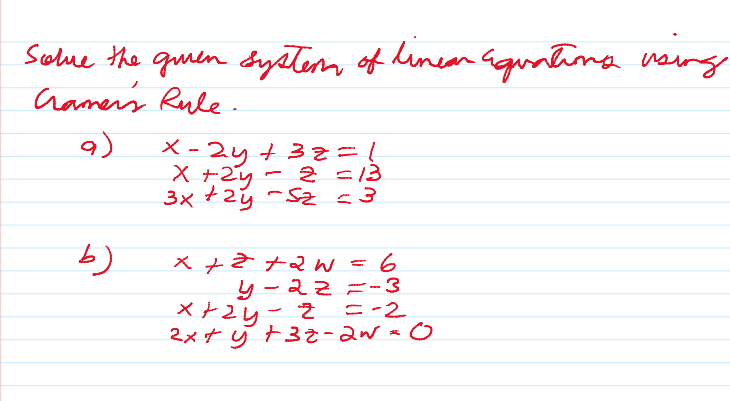 Solve the given system of linear equations using
Cramer's Rule.
a) x - 2y + 3z = 1
x + 2y - z = 13
3x + 2y - 5z = 3
b) x + z + 2w = 6
y - 2z = -3
x + 2y - z = -2
2x + y + 3z - 2w = 0